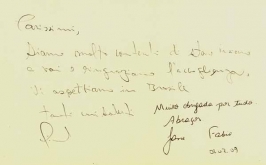 Carissimi,
Siamo molto contenti di
a voi e ringraziamo l'accoglienza,
Vi aspettiamo in Brasile
tanti
Muito obrigada por tudo.
Abraços
Jane Fabio